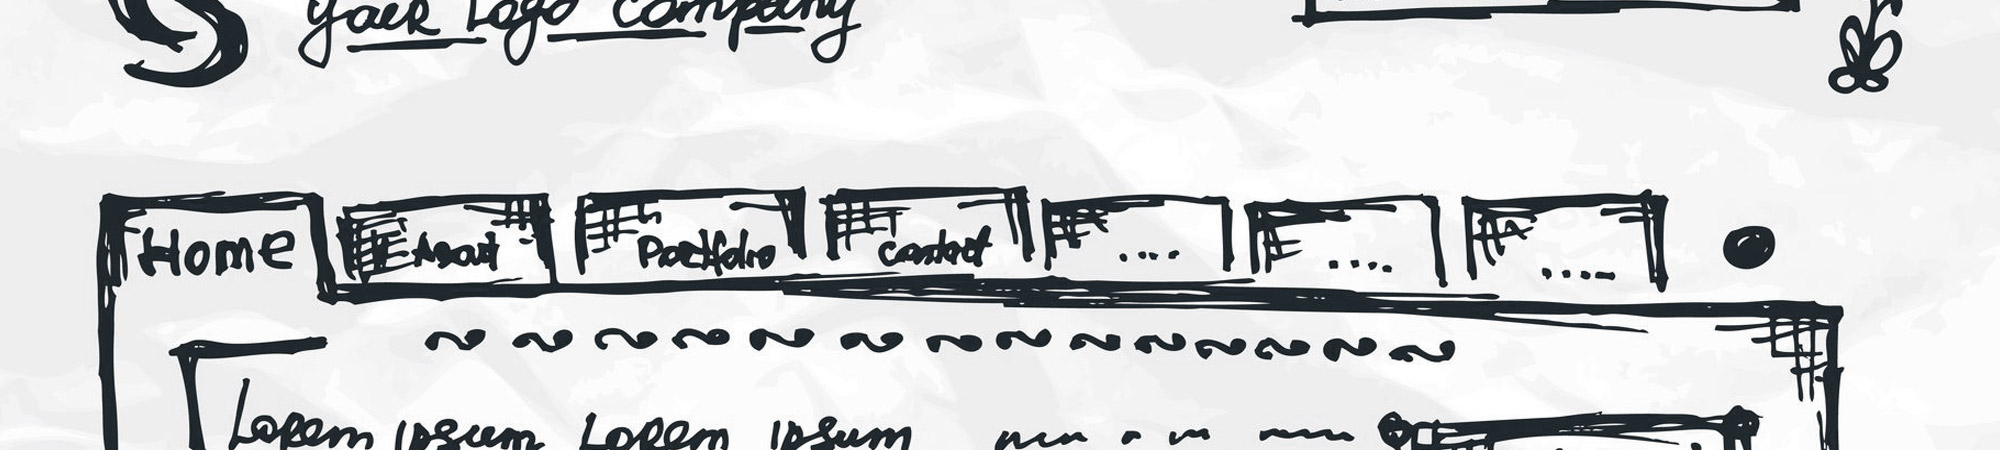 Your Logo Company
Home About Portfolio Contact .... .... .....
Lorem ipsum Lorem ipsum